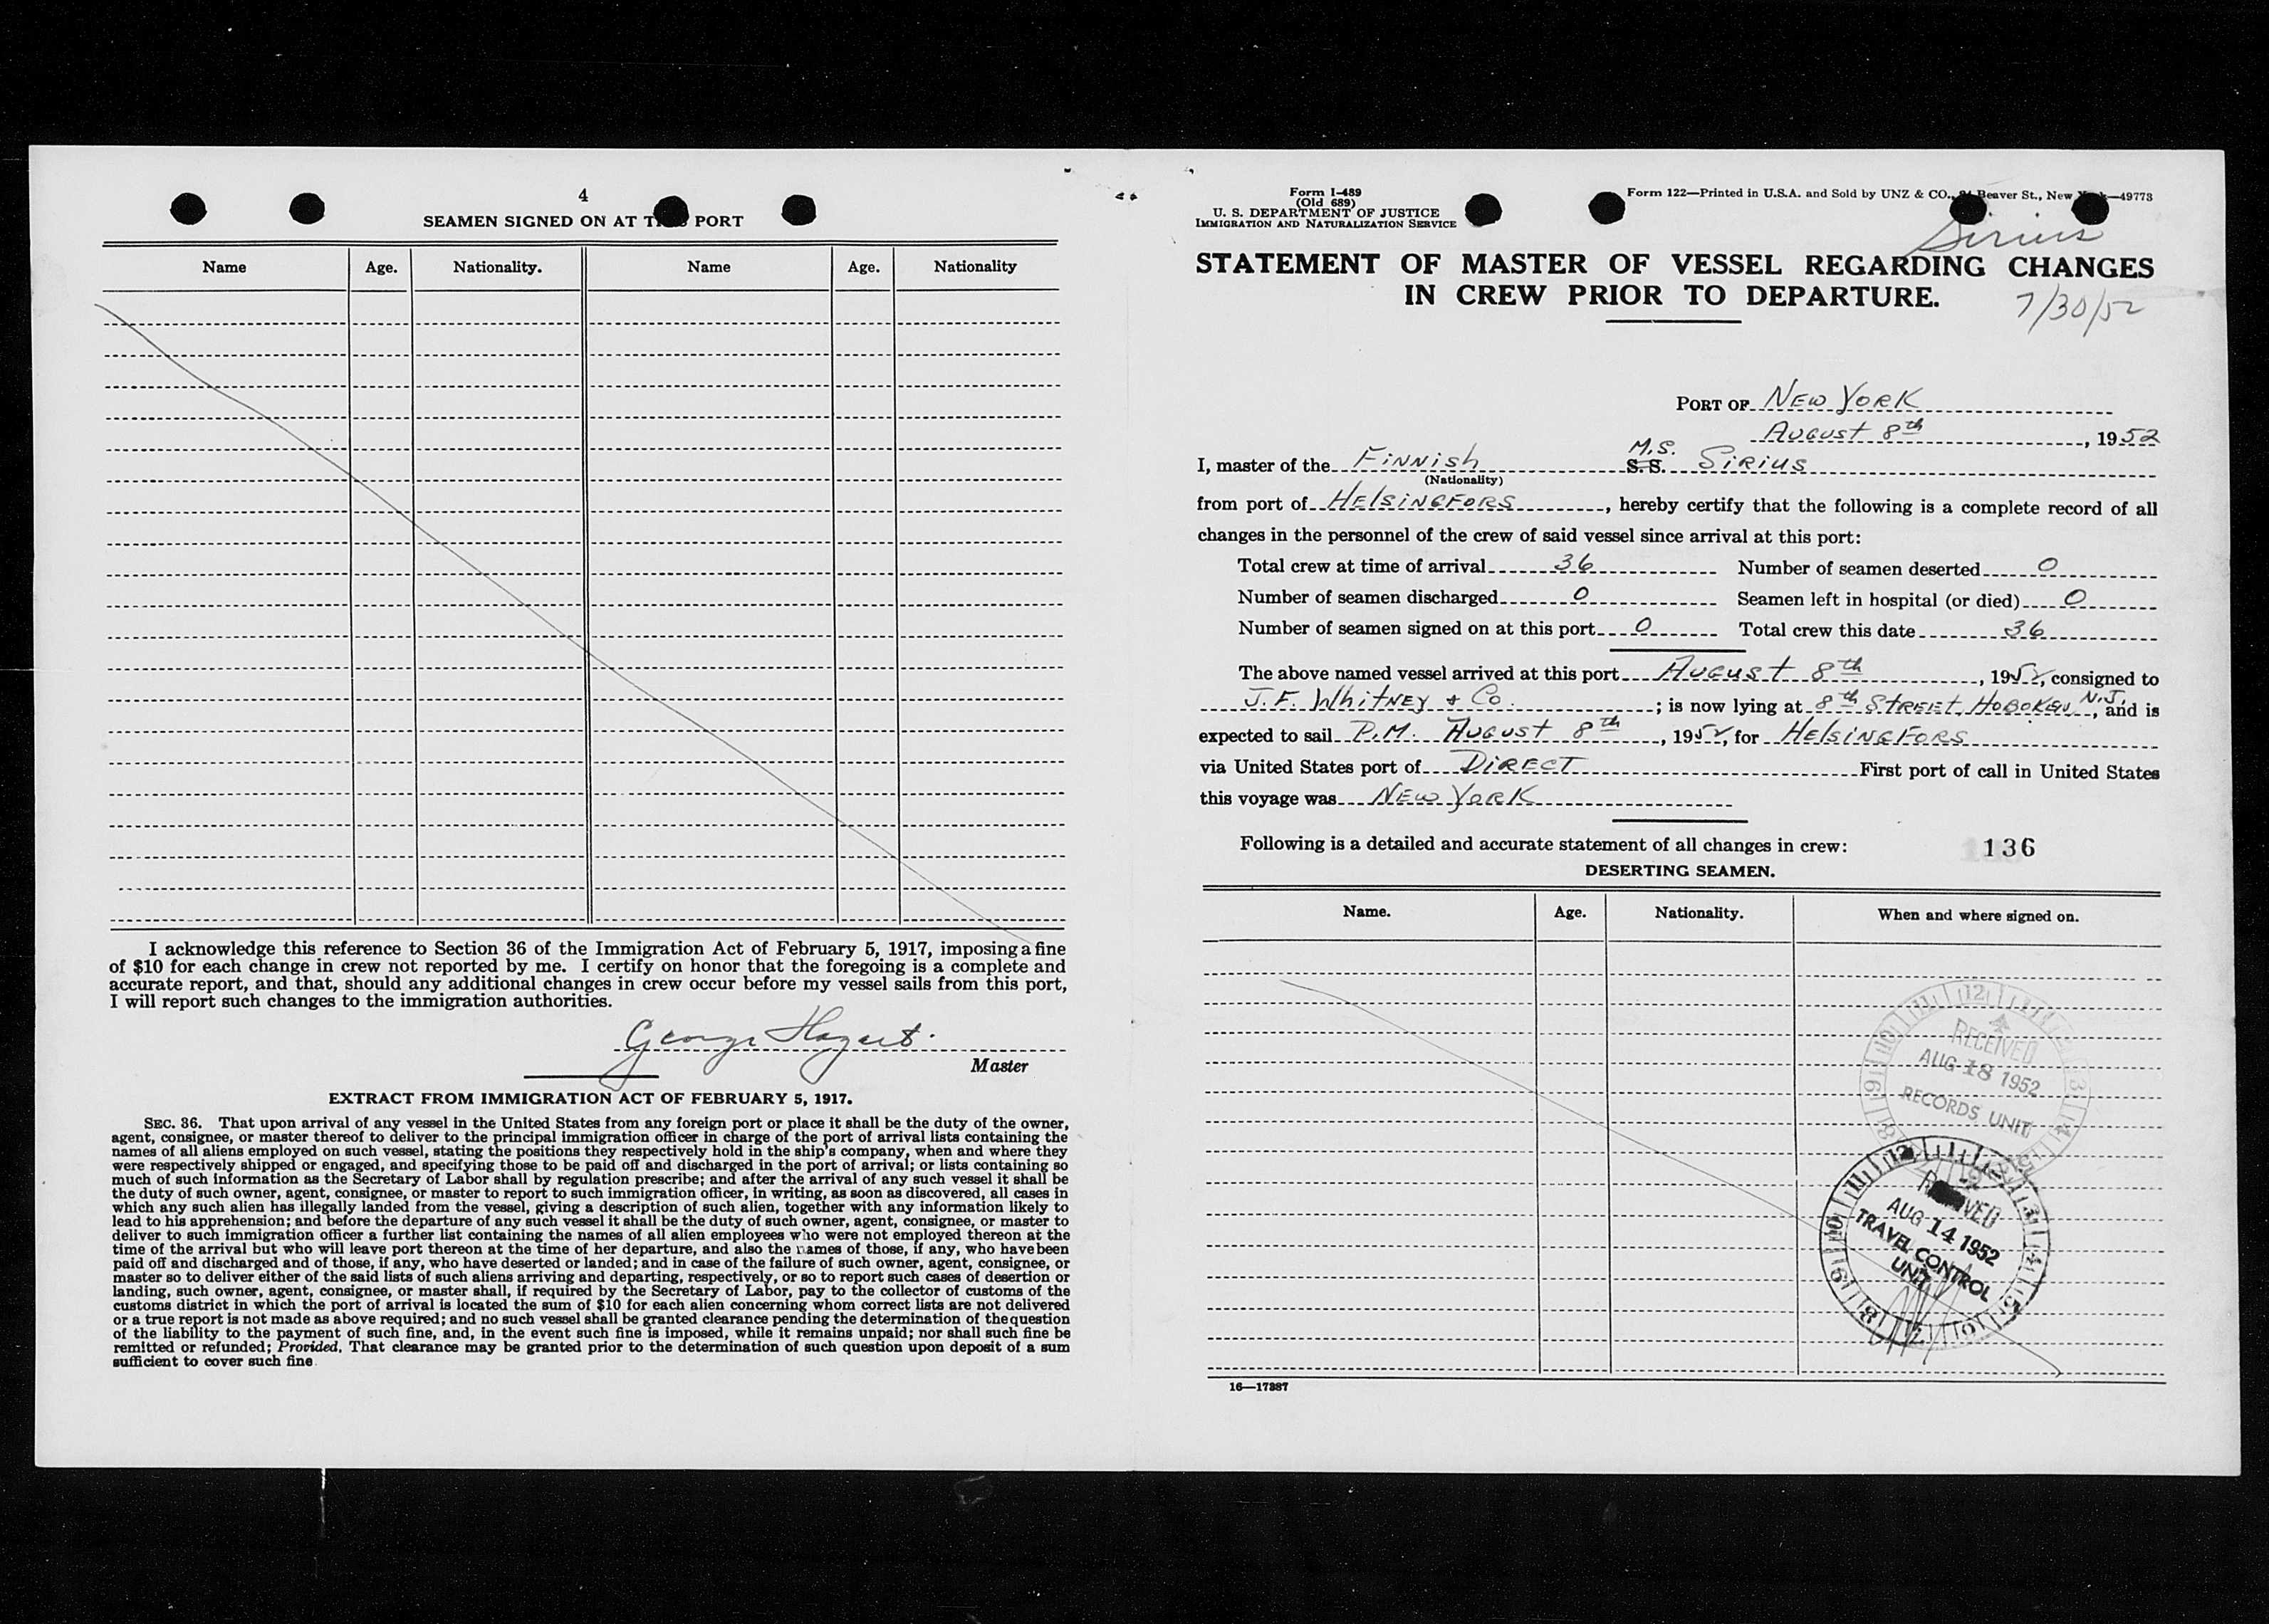 4
SEAMEN SIGNED ON AT PORT
Name Age. Nationality. Name Age. Nationality
I acknowledge this reference to Section 36 of the Immigration Act of February 5, 1917, imposing a fine
of $10 for each change in crew not reported by me. I certify on honor that the foregoing is a complete and
accurate report, and that, should any additional changes in crew occur before my vessel sails from this port,
I will report such changes to the immigration authorities.
George
Master
EXTRACT FROM IMMIGRATION ACT OF FEBRUARY 5, 1917.
SEC. 36. That upon arrival of any vessel in the United States from any foreign port or place it shall be the duty of the owner,
agent, consignee, or master thereof to deliver to the principal immigration officer in charge of the port of arrival lists containing the
names of all aliens employed on such vessel, stating the positions they respectively hold in the ship's company, when and where they
were respectively shipped or engaged, and specifying those to be paid off and discharged in the port of arrival; or lists containing so
much of such information as the Secretary of Labor shall by regulation prescribe; and after the arrival of any such vessel it shall be
the duty of such owner, agent, consignee, or master to report to such immigration officer, in writing, as soon as discovered, all cases in
which any such alien has illegally landed from the vessel, giving a description of such alien, together with any information likely to
lead to his apprehension; and before the departure of any such vessel it shall be the duty of such owner, agent, consignee, or master to
deliver to such immigration officer a further list containing the names of all alien employees who were not employed thereon at the
time of the arrival but who will leave port thereon at the time of her departure, and also the names of those, if any, who have been
paid off and discharged and of those, if any, who have deserted or landed; and in case of the failure of such owner, agent, consignee, or
master so to deliver either of the said lists of such aliens arriving and departing, respectively, or so to report such cases of desertion or
landing, such owner, agent, consignee, or master shall, if required by the Secretary of Labor, pay to the collector of customs of the
customs district in which the port of arrival is located the sum of $10 for each alien concerning whom correct lists are not delivered
or a true report is not made as above required; and no such vessel shall be granted clearance pending the determination of the question
of the liability to the payment of such fine, and, in the event such fine is imposed, while it remains unpaid; nor shall such fine be
remitted or refunded; Provided, That clearance may be granted prior to the determination of such question upon deposit of a sum
sufficient to cover such fine.
Form I-489
(Old 689)
U. S. DEPARTMENT OF JUSTICE
IMMIGRATION AND NATURALIZATION SERVICE
Form 122—Printed in U.S.A. and Sold by UNZ & CO., Beaver St., New —49773
Sirius
STATEMENT OF MASTER OF VESSEL REGARDING CHANGES
IN CREW PRIOR TO DEPARTURE.
7/30/52
PORT OF NEW YORK
AUGUST 8th, 1952
I, master of the FINNISH M.S. S.S. SIRIUS
(Nationality)
from port of HELSINGFORS, hereby certify that the following is a complete record of all
changes in the personnel of the crew of said vessel since arrival at this port:
Total crew at time of arrival 36 Number of seamen deserted 0
Number of seamen discharged 0 Seamen left in hospital (or died) 0
Number of seamen signed on at this port 0 Total crew this date 36
The above named vessel arrived at this port AUGUST 8th, 1952, consigned to
J.F. WHITNEY & Co.; is now lying at 8th STREET, HOBOKEN N.J., and is
expected to sail P.M. AUGUST 8th, 1952, for HELSINGFORS
via United States port of DIRECT First port of call in United States
this voyage was NEW YORK
Following is a detailed and accurate statement of all changes in crew: 136
DESERTING SEAMEN.
Name. Age. Nationality. When and where signed on.
RECEIVED
AUG 18 1952
RECORDS UNIT
RECEIVED
AUG 14 1952
TRAVEL CONTROL
UNIT
16—17387